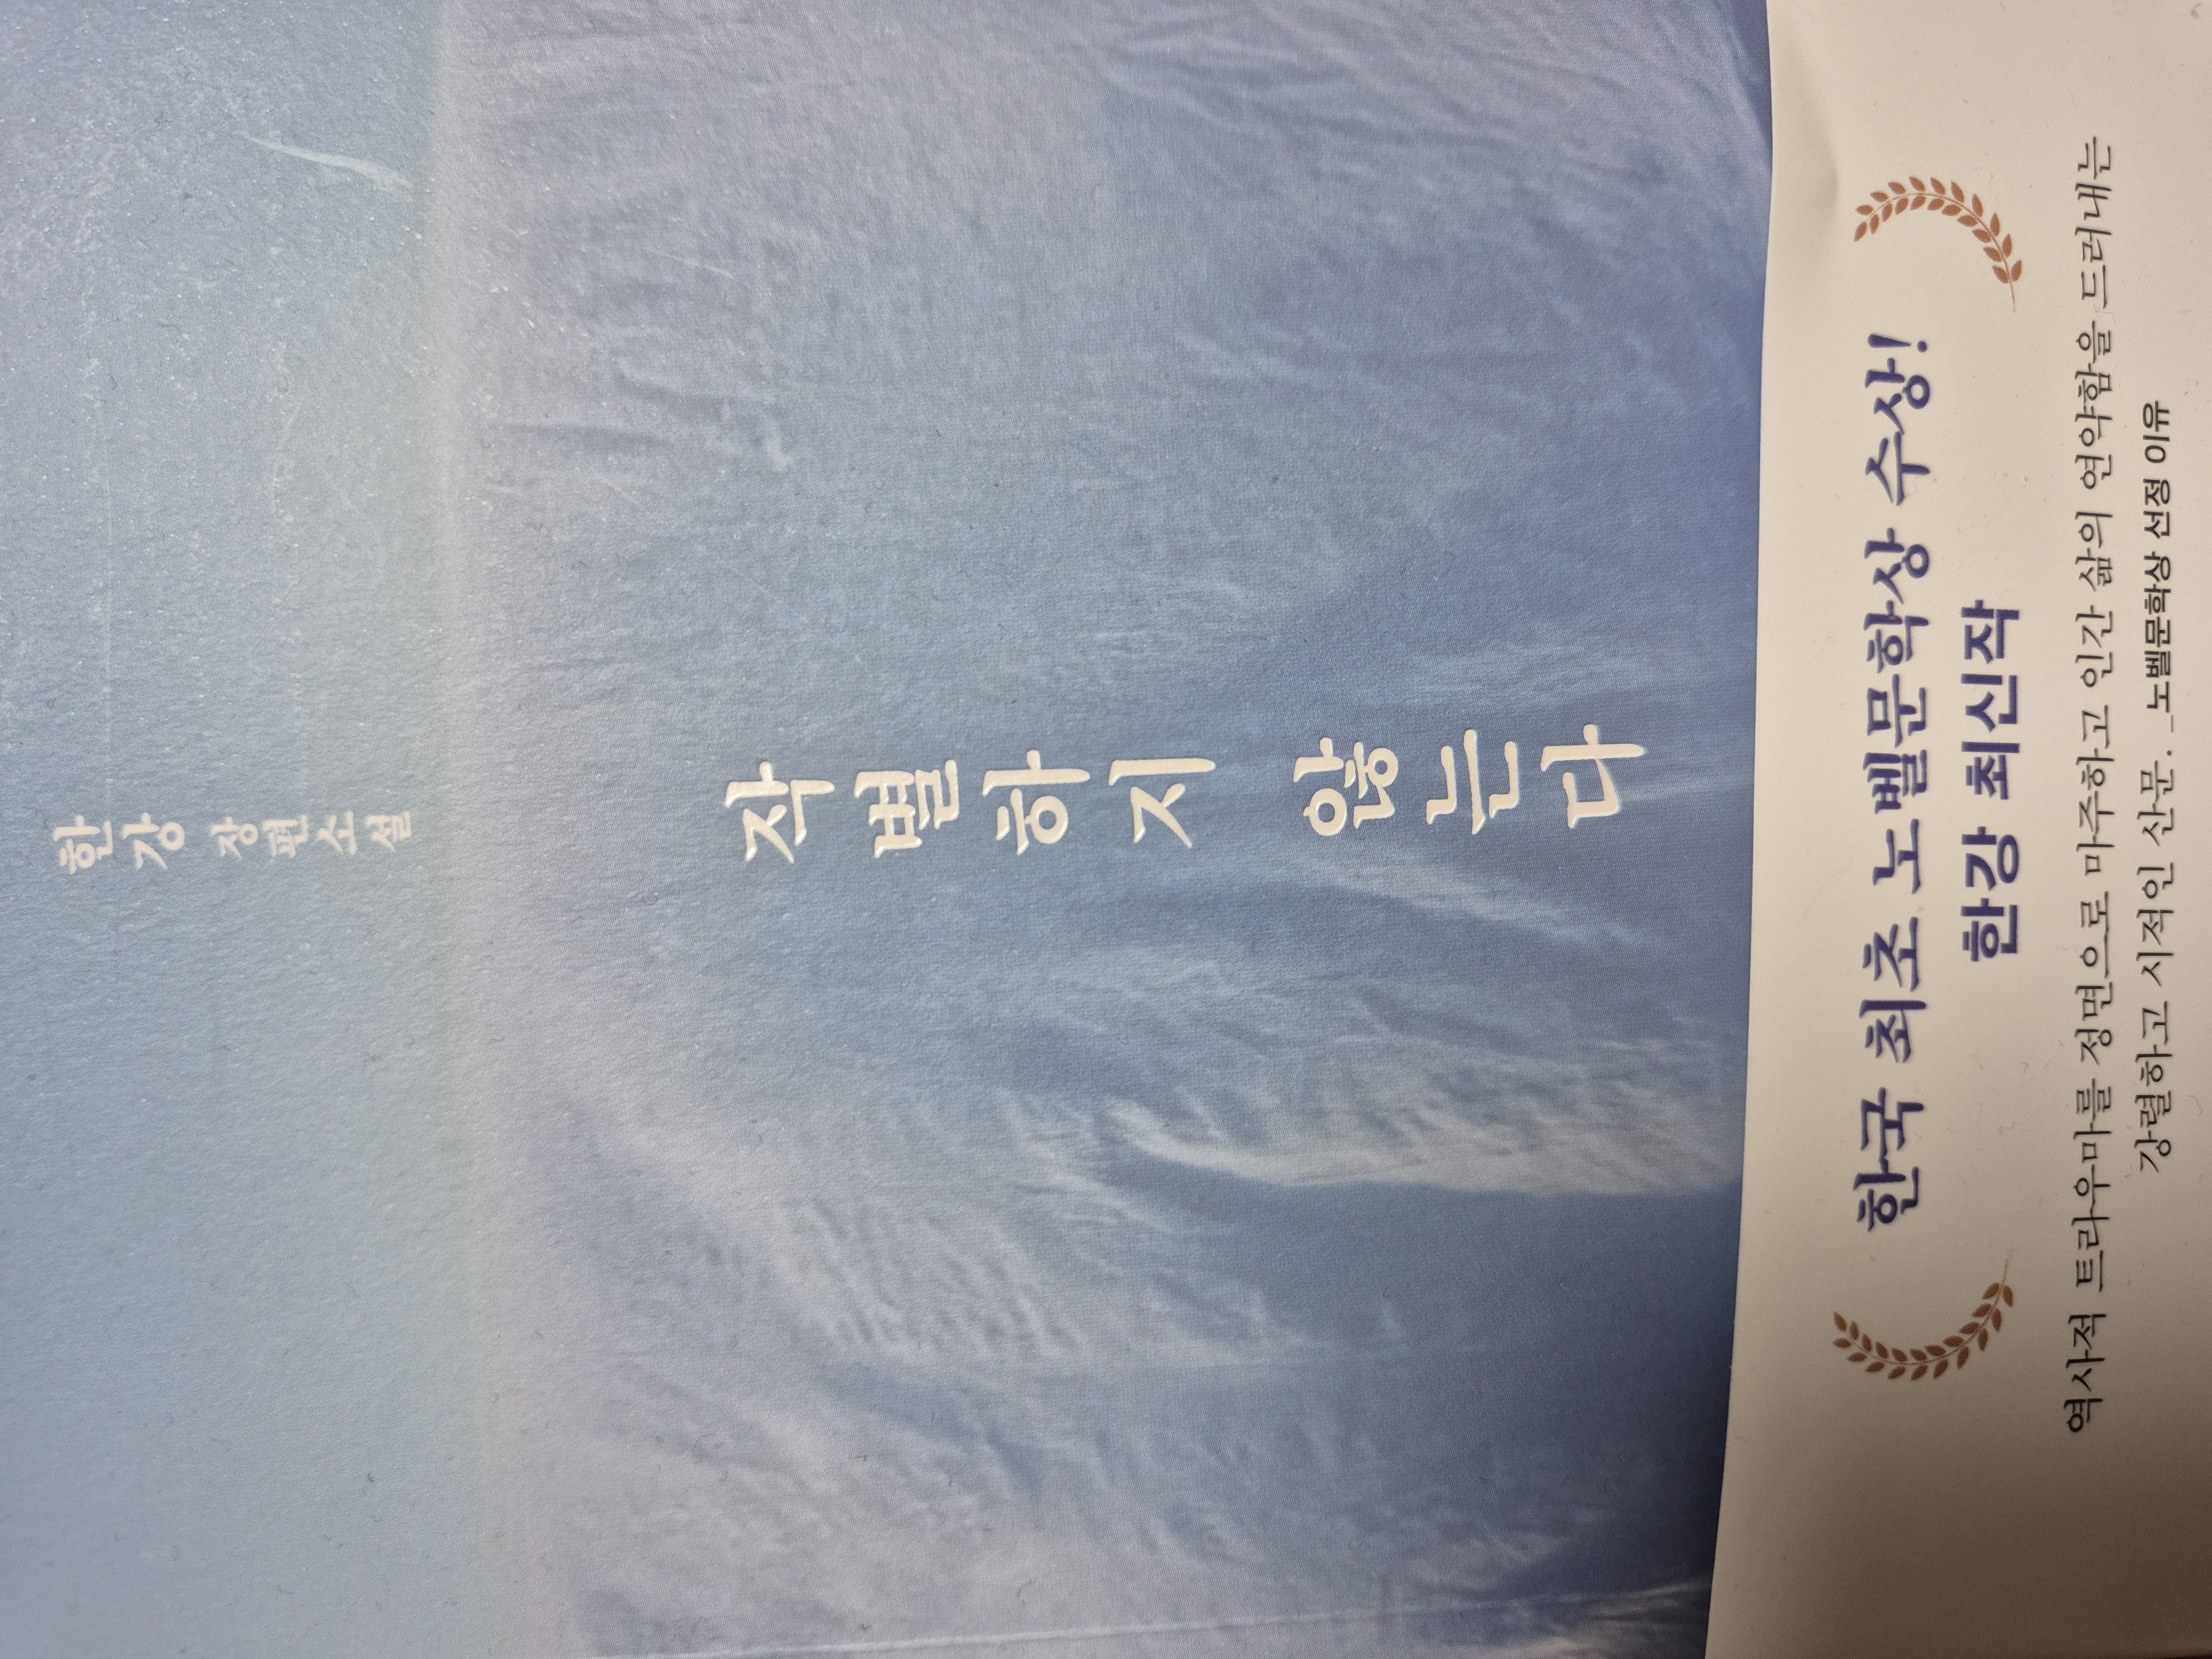 한강 장편소설
작별하지 않는다
한국 최초 노벨문학상 수상!
한강 최신작
역사적 트라우마를 정면으로 마주하고 인간 삶의 연약함을 드러내는
강렬하고 시적인 산문. _노벨문학상 선정 이유